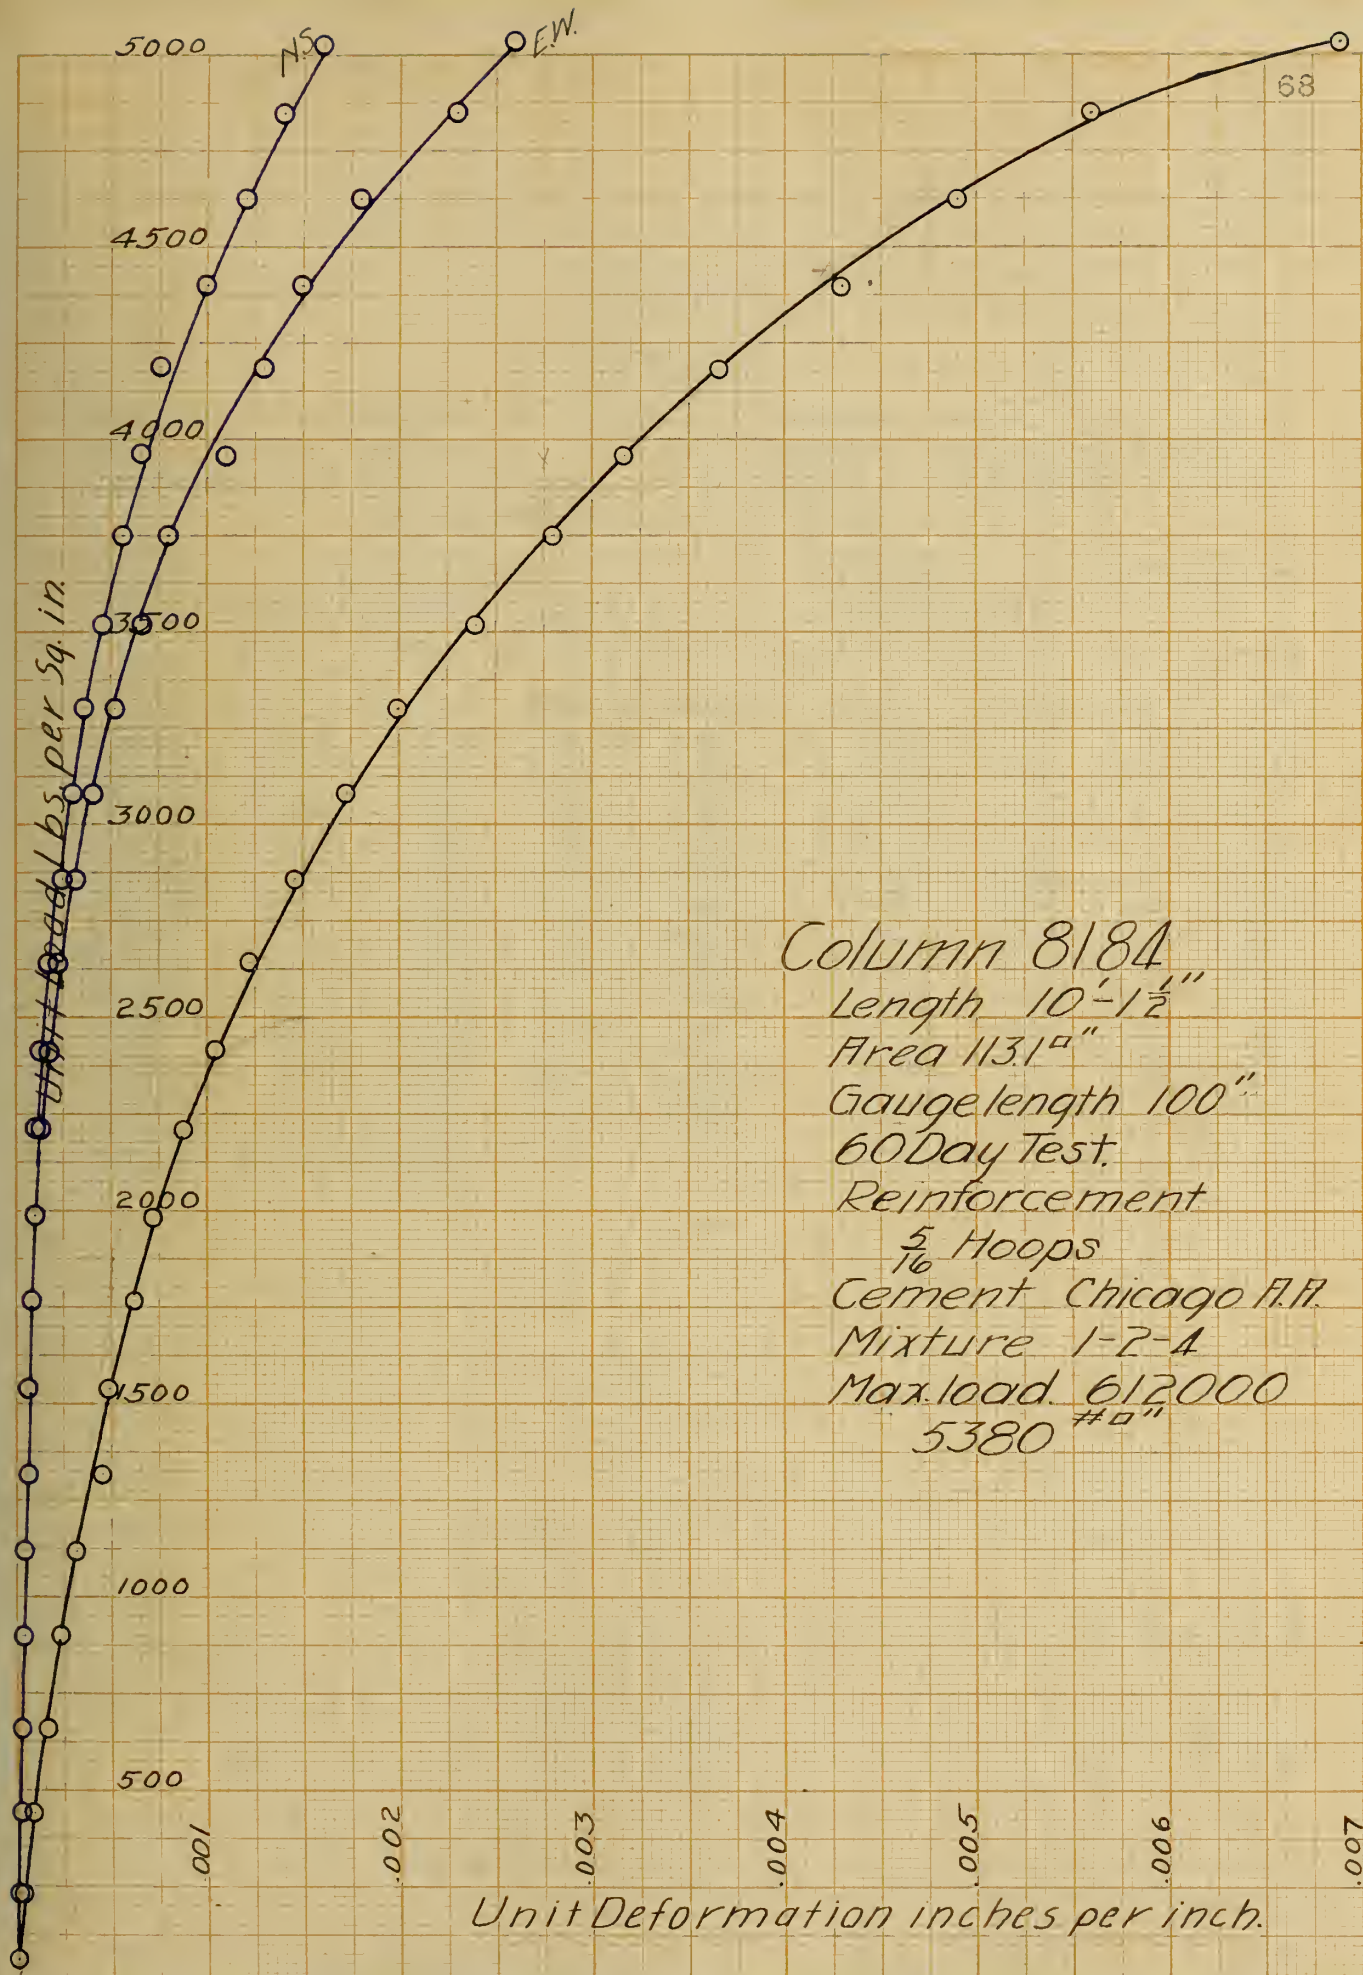 5000
N.S.
E.W.
68
4500
4000
3500
3000
2500
2000
1500
1000
500
Unit load lbs. per Sq. in.
Column 8184
Length 10'-1½"
Area 113.1□"
Gauge length 100"
60 Day Test.
Reinforcement
5/16 Hoops
Cement Chicago A.A.
Mixture 1-2-4
Max. load. 612000
5380 #□"
.001
.002
.003
.004
.005
.006
.007
Unit Deformation inches per inch.